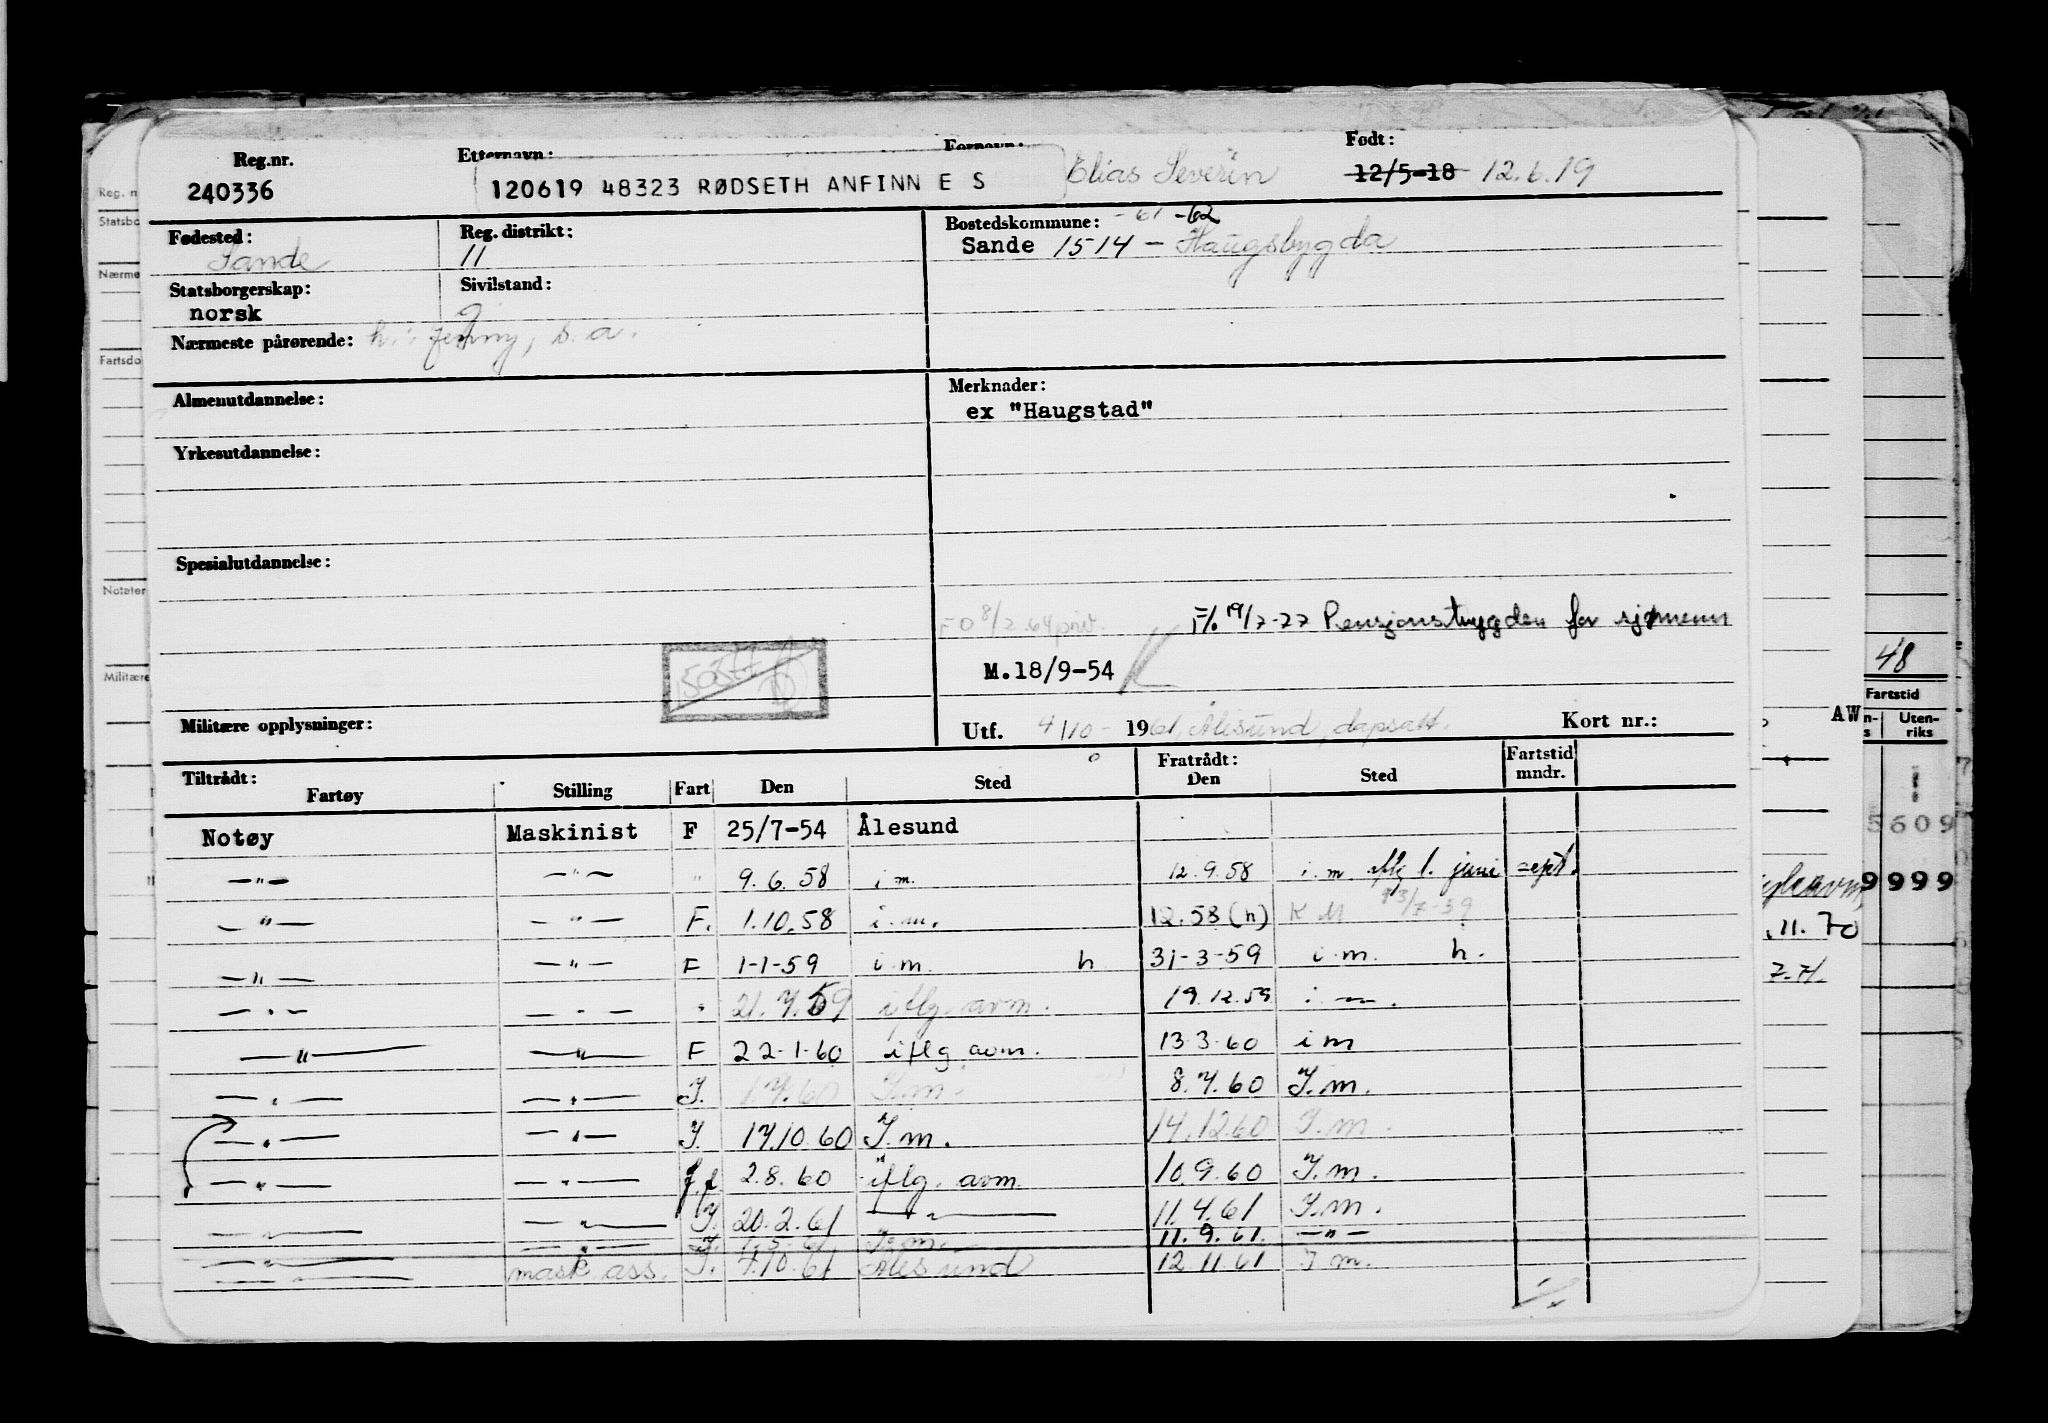 Reg.nr. Etternavn: Fornavn: Født:
240336 120619 48323 RØDSETH ANFINN E S Elias Severin 12/5-18 12.6.19
Fødested: Reg. distrikt: Bostedskommune: -61 -62
Sande 11 Sande 1514 - Haugsbygda
Statsborgerskap: Sivilstand:
norsk g
Nærmeste pårørende: h.: Jenny, s.a.
Almenutdannelse: Merknader:
ex "Haugstad"
Yrkesutdannelse:
Spesialutdannelse:
FO 8/2.64 priv. F/. 19/7-77 Pensjonstrygden for sjømenn
M.18/9-54
Militære opplysninger: Utf. 4/10 - 1961, Ålesund, dapsatt. Kort nr.:
Tiltrådt: Fratrådt: Fartstid
Fartøy Stilling Fart Den Sted Den Sted mndr.
Notøy Maskinist F 25/7-54 Ålesund
—"— —"— " 9.6.58 i m. 12.9.58 i.m iflg 1. juni sept.
—"— —"— F. 1.10.58 i.m. 12.58 (h) K M 3/7-59
—"— —"— F 1-1-59 i.m. h 31-3-59 i.m. h.
—"— —"— " 21.7.59 iflg. avm. 19.12.59 i.m.
—"— —"— F 22-1-60 iflg avm. 13.3.60 i m
—"— —"— I. 1.7.60 I.m. 8.7.60 I.m.
—"— —"— I. 17.10.60 I.m. 14.12.60 I.m.
—"— —"— f.f 2.8.60 iflg. avm. 10.9.60 I.m.
—"— —"— I. 20.2.61 —"— 11.4.61 I.m.
—"— —"— I. 1.5.61 I.m. 11.9.61. —"—
—"— mask ass. I. 7.10.61 Ålesund 12.11.61 I m.
Reg. n
Statsbo
Nærme
Fartsdo
Notater
Militære
48
Fartstid
AW
Uten-
riks
5609
9999
.11.70